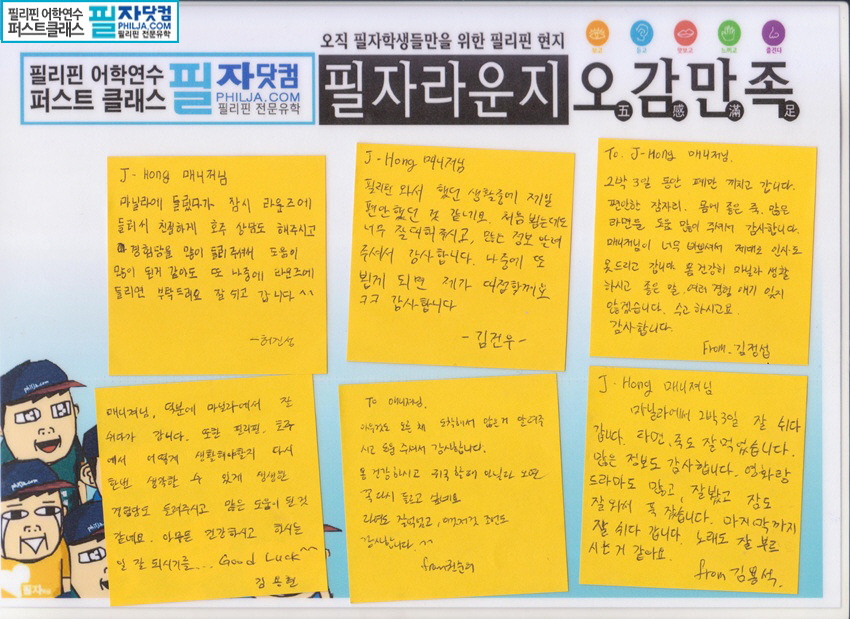 필리핀 어학연수
퍼스트클래스
필자닷컴
PHILJA.COM
필리핀 전문유학
오직 필자학생들만을 위한 필리핀 현지
필리핀 어학연수
퍼스트 클래스
필자닷컴
PHILJA.COM
필리핀 전문유학
필자라운지
오감만족
五感滿足
J-Hong 매니저님
마닐라에 들렀다가 잠시 라운즈에
들러서 친절하게 호주 상담도 해주시고
경험담을 많이 들려주셔서 도움이
많이 된거 같아요 또 나중에 라운즈에
들리면 부탁드려요 잘 쉬고 갑니다 ^^
J-Hong 매니저님
필리핀 와서 했던 생활중에 제일
편안했던 것 같네요. 처음 뵙는데도
너무 잘 대해주시고, 많은 정보 알려
주셔서 감사합니다. 나중에 또
뵙게 되면 제가 대접할께요
ㅋㅋ 감사합니다
-김건우-
To. J-Hong 매니저님.
2박 3일 동안 폐만 끼치고 갑니다.
편안한 잠자리. 몸에 좋은 죽. 맑은
라면등 도움 많이 주셔서 감사합니다.
매니저님이 너무 바쁘셔서 제대로 인사도
못드리고 갑니다 몸 건강히 마닐라 생활
하시고 좋은 말. 여러 경험 얘기 잊지
않겠습니다. 수고하시고요.
감사합니다.
From. 김정섭
매니저님, 덕분에 마닐라에서 잘
쉬다가 갑니다. 또한 필리핀, 호주
에서 어떻게 생활해야할지 다시
한번 생각할 수 있게 생생한
경험담도 들려주시고 많은 도움이 된것
같네요. 아무튼 건강하시고 하시는
일 잘 되시기를... Good Luck^^
김용현
To 매니저님.
아무것도 모른 채 도착해서 많은거 알려주
시고 도움 주셔서 감사합니다.
몸 건강하시고 귀국할때 마닐라 오면
꼭 다시 들르고 싶네요
라면도 잘먹었고,
감사합니다. ^^
from
J-Hong 매니져님
마닐라에서 2박3일 잘 쉬다
갑니다. 라면, 죽도 잘 먹었습니다.
많은 정보도 감사합니다. 영화랑
드라마도 많고, 잘봤고 잠도
잘와서 푹 잤습니다. 마지막까지
잘 쉬다 갑니다. 노래도 잘 부르
시는거 같아요.
from 김봉석.
philja.com
philja.com
필자